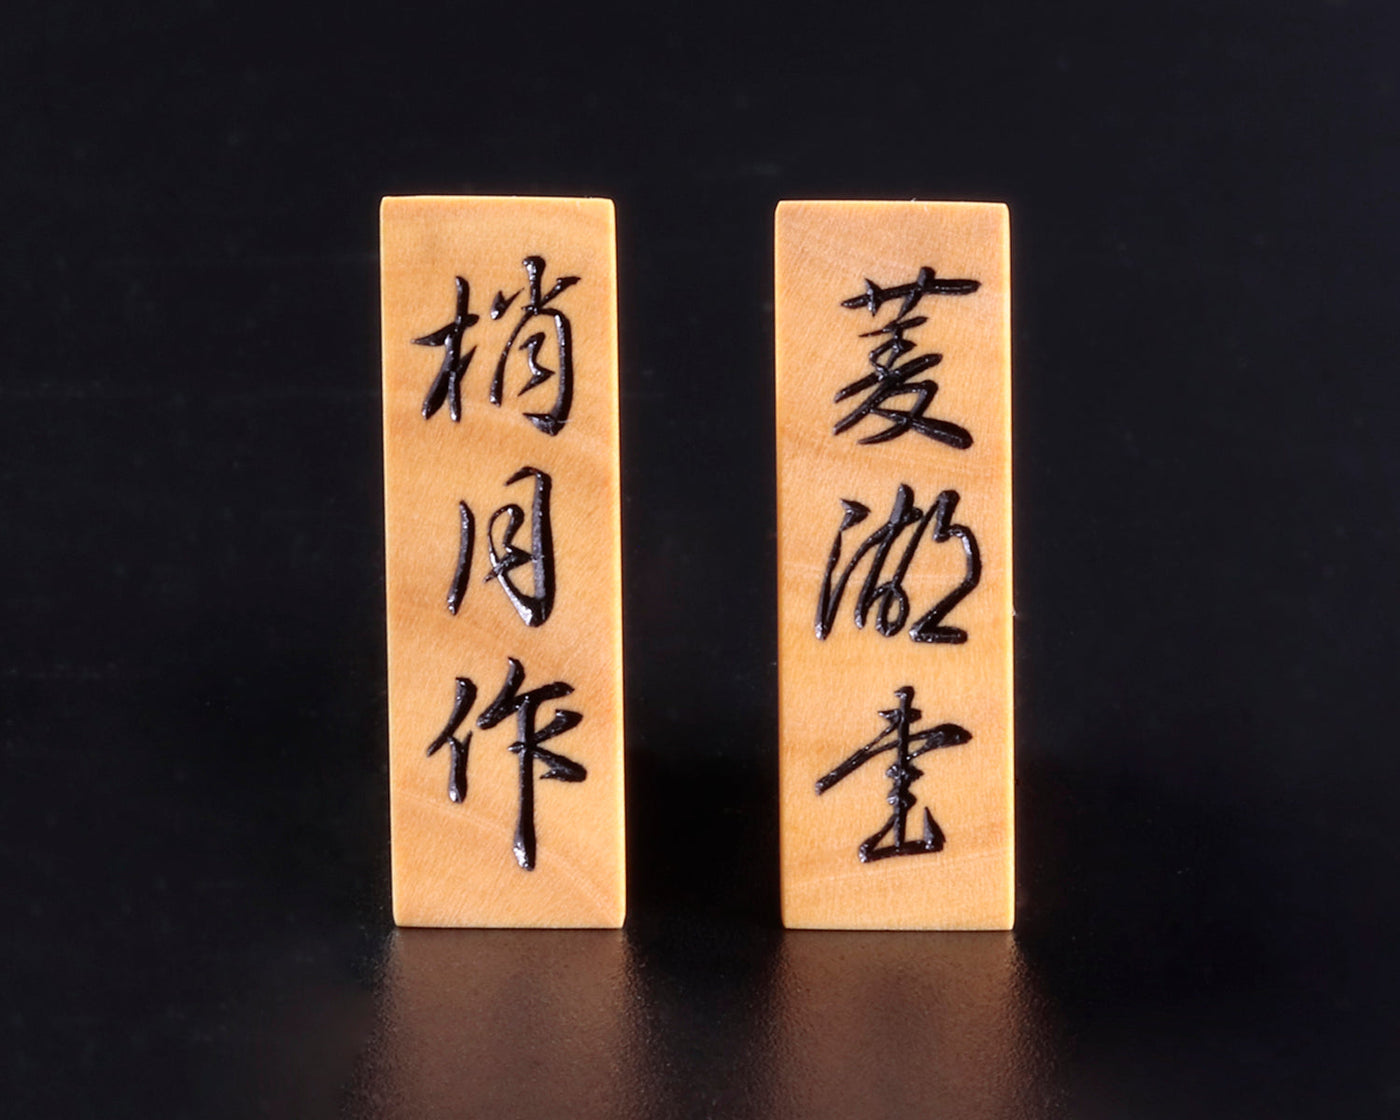 菱湖書
梢月作